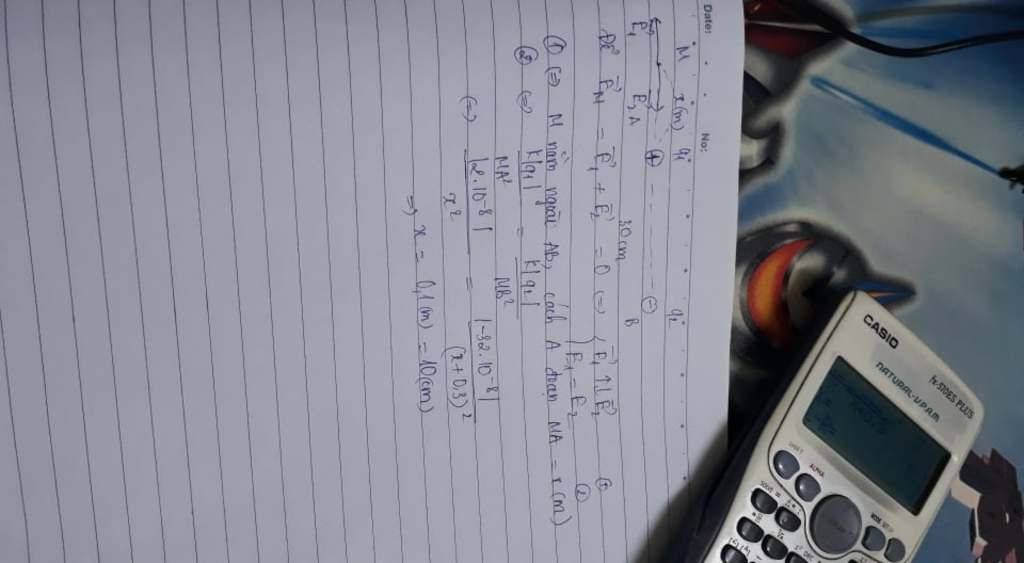 Date: No:
M x(m) q₁ q₂
E₁ E₂ A ⊕ 30cm ⊖ B
Để E⃗M = E⃗₁ + E⃗₂ = 0 ⇔ { E⃗₁ ↑↓ E⃗₂ ①
E₁ = E₂ ②
① ⇔ M nằm ngoài AB, cách A đoạn MA = x(m)
② ⇔ k|q₁| / MA² = k|q₂| / MB²
⇔ |2.10⁻⁸| / x² = |-32.10⁻⁸| / (x+0,3)²
⇒ x = 0,1(m) = 10(cm)
CASIO
fx-570ES PLUS
NATURAL-V.P.A.M.
SHIFT
ALPHA
MODE SETUP
SOLVE =